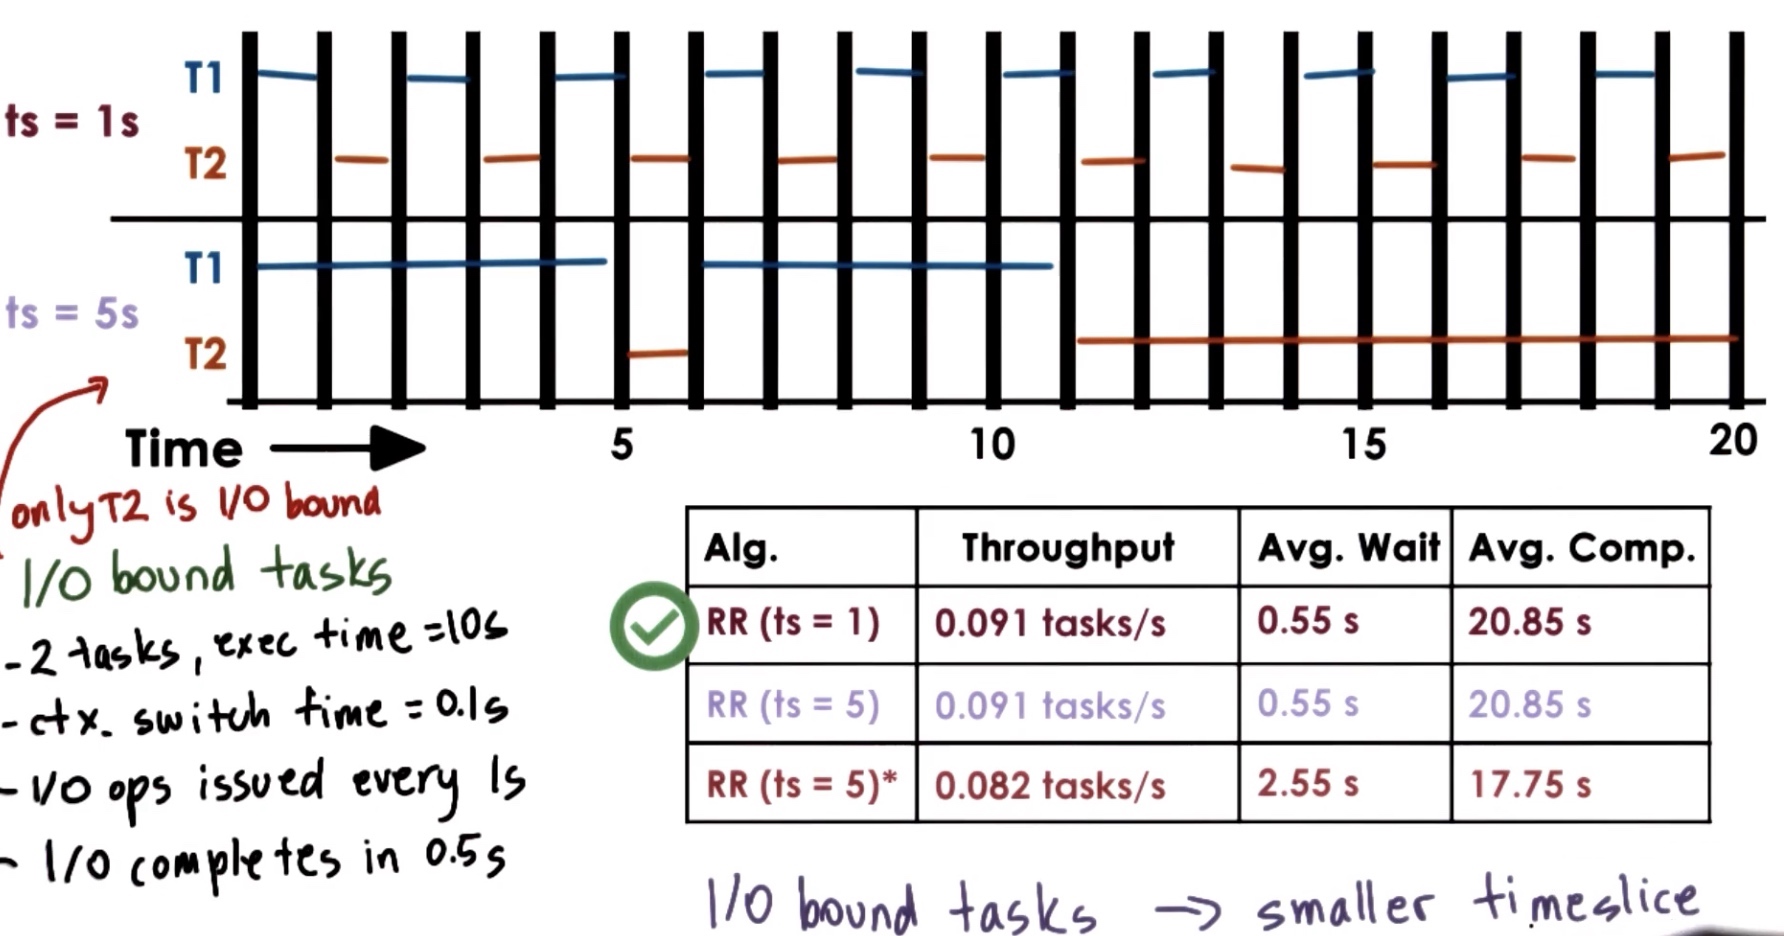 T1
ts = 1s
T2
T1
ts = 5s
T2
Time 5 10 15 20
only T2 is I/O bound
I/O bound tasks
- 2 tasks, exec time =10s
- ctx. switch time = 0.1s
- I/O ops issued every 1s
- I/O completes in 0.5s
Alg. Throughput Avg. Wait Avg. Comp.
RR (ts = 1) 0.091 tasks/s 0.55 s 20.85 s
RR (ts = 5) 0.091 tasks/s 0.55 s 20.85 s
RR (ts = 5)* 0.082 tasks/s 2.55 s 17.75 s
I/O bound tasks → smaller timeslice